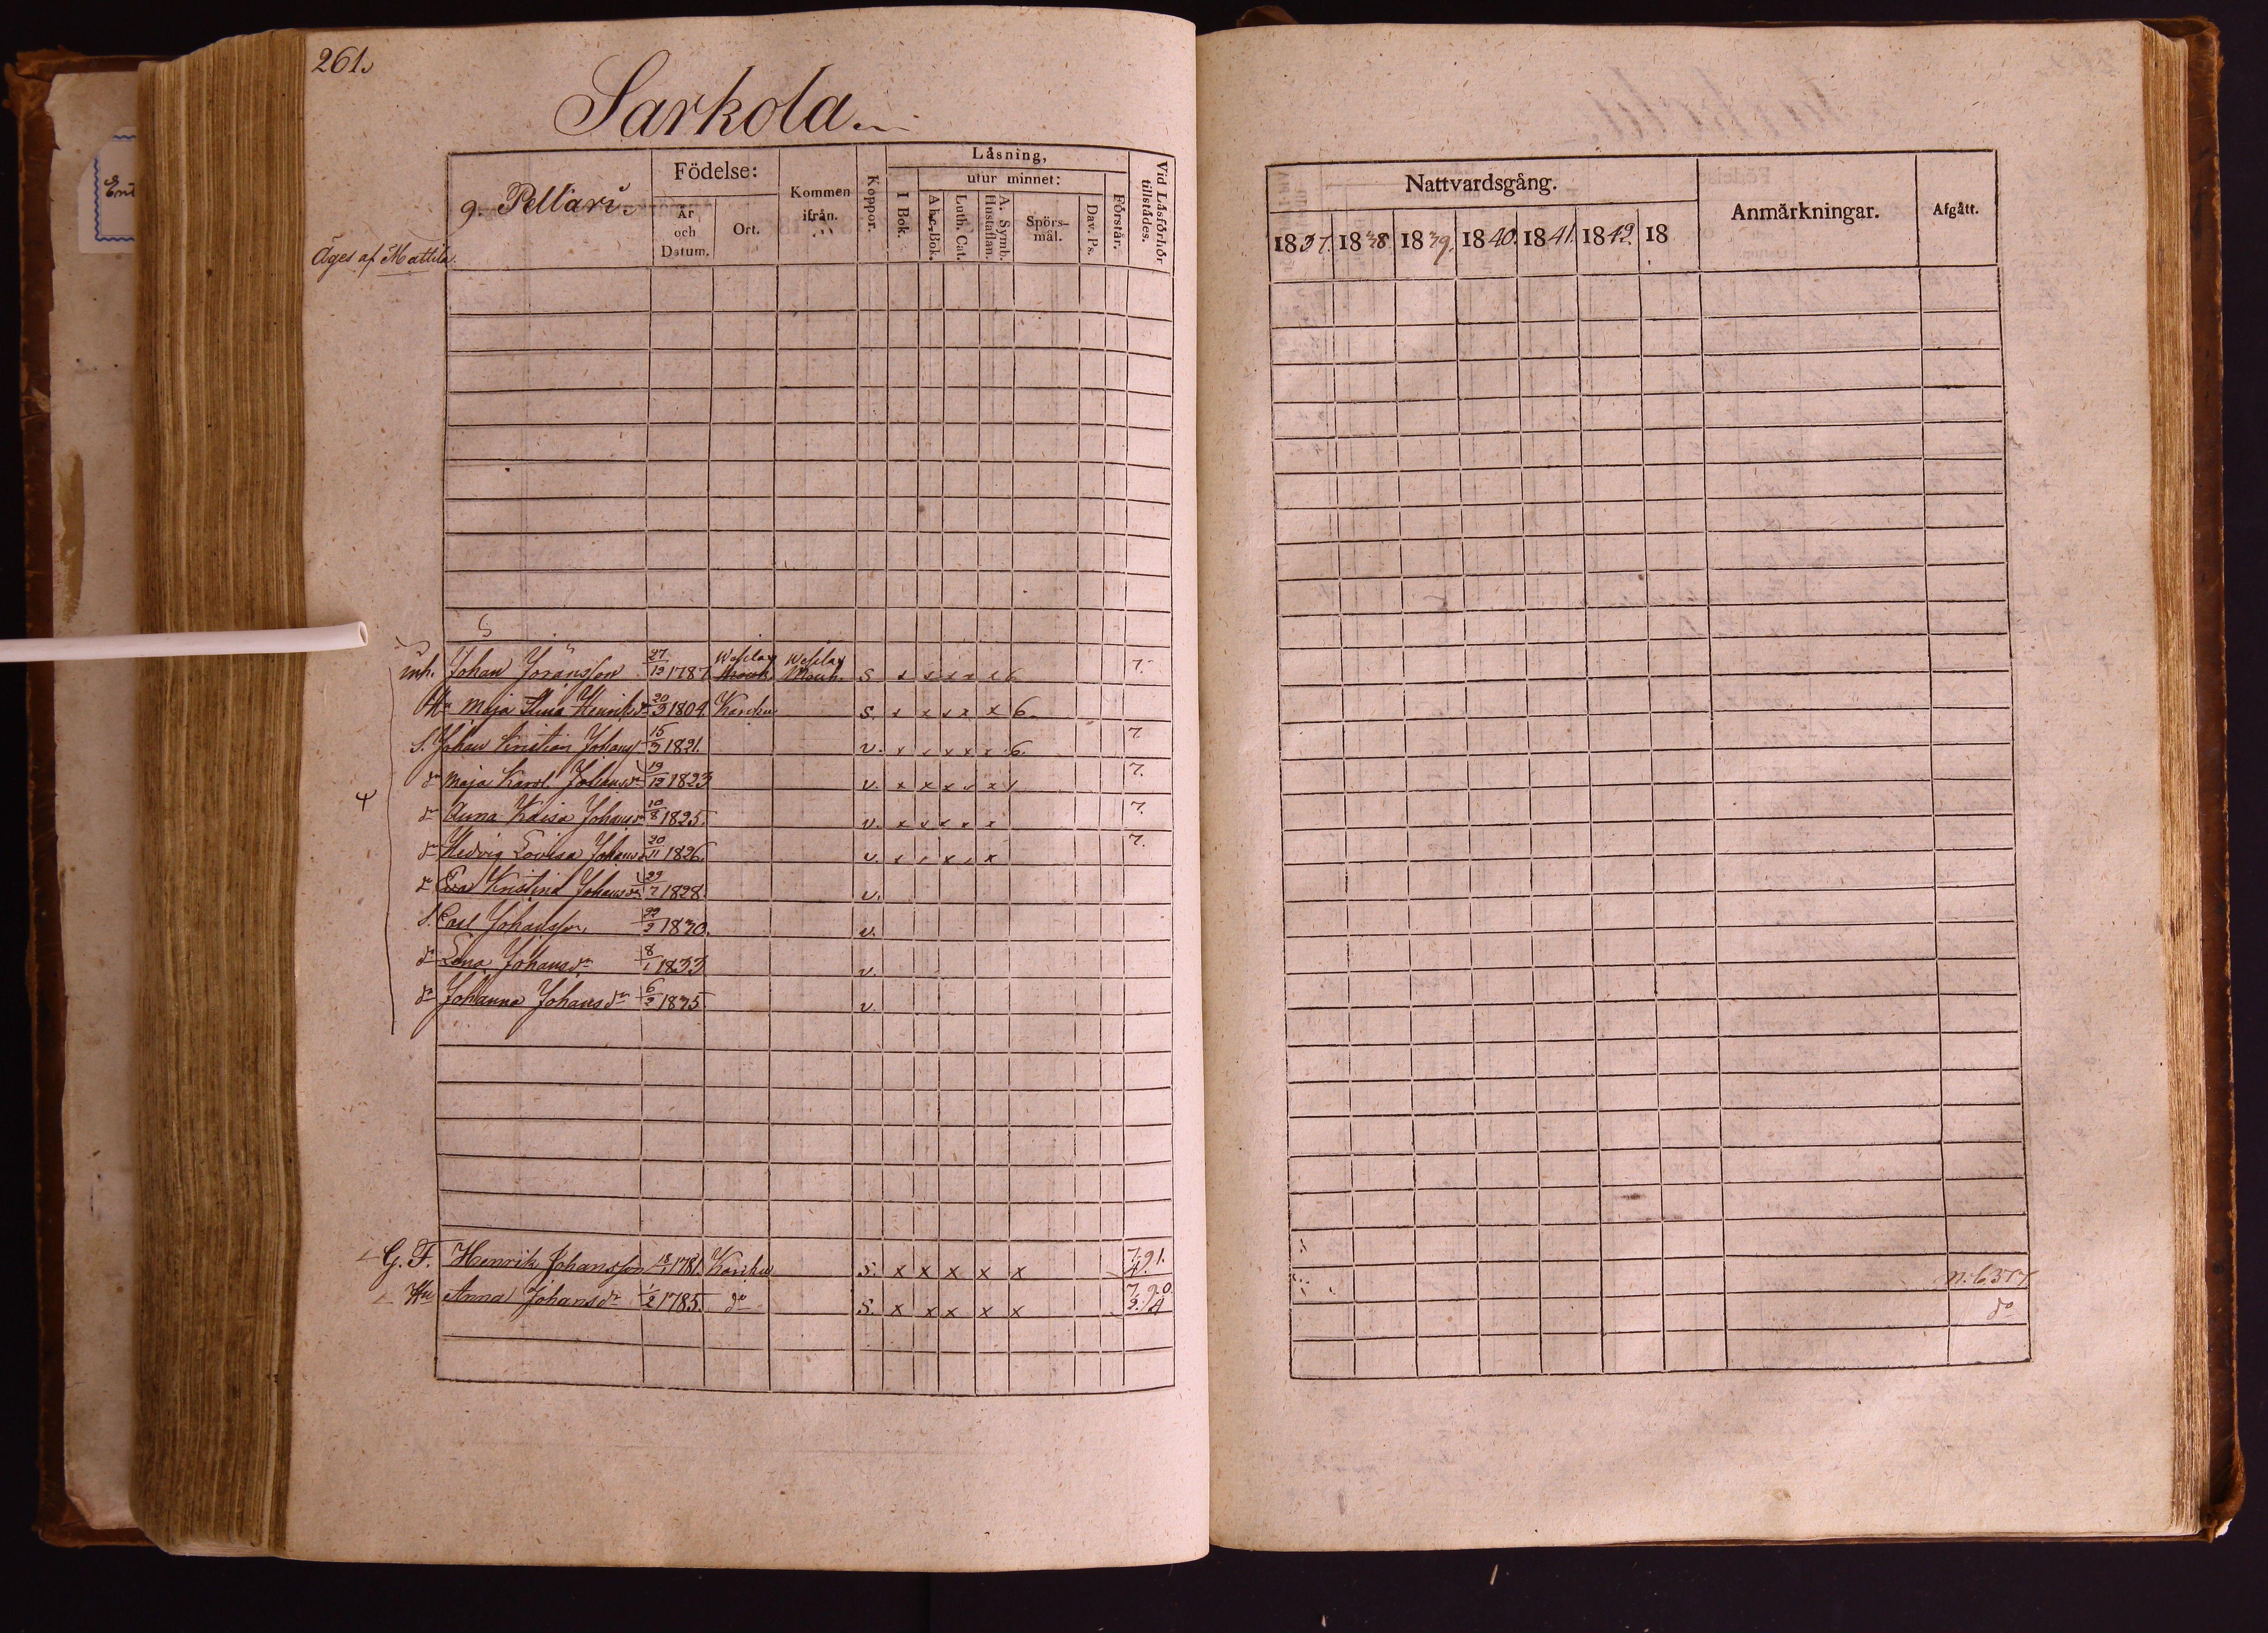 261.
Sarkola.
9. Pellari.
Äges af Mattila.
Födelse:
År och Datum.
Ort.
Kommen ifrån.
Koppor.
Läsning,
I Bok.
utur minnet:
Abc-Bok.
Luth. Cat.
A. Symb. Hustaflan.
Spörs-mål.
Dav. Ps.
Förstår.
Vid Läsförhör tillstådes.
inh. Johan Jöransson 27/12 1787 s x x x x x 6 7.
Hu Maja Stina Henriksdr 20/3 1804 Karku s. x x x x x 6
S. Johan Kristian Johans 15/3 1821. v. x x x x x 6. 7.
dr Maja Karol. Johansdr 19/12 1823 v. x x x x x 7.
dr Anna Kaisa Johansdr 10/8 1825. v. x x x x x 7.
dr Hedvig Lovisa Johans 20/11 1826. v. x x x x x 7.
dr Eva Kristina Johansdr 29/7 1828. v.
S. Carl Johansson 22/2 1830. v.
dr Lena Johansdr 8/1 1833 v.
dr Johanna Johansdr 6/2 1835 v.
G. F. Henrik Johansson 18/1 1781. Karku s. x x x x x
Hu Anna Johansdr 1/2 1785. do s. x x x x x
Nattvardsgång.
1837. 1838. 1839. 1840. 1841. 1842. 18
Anmärkningar.
Afgått.
n: 6377
do